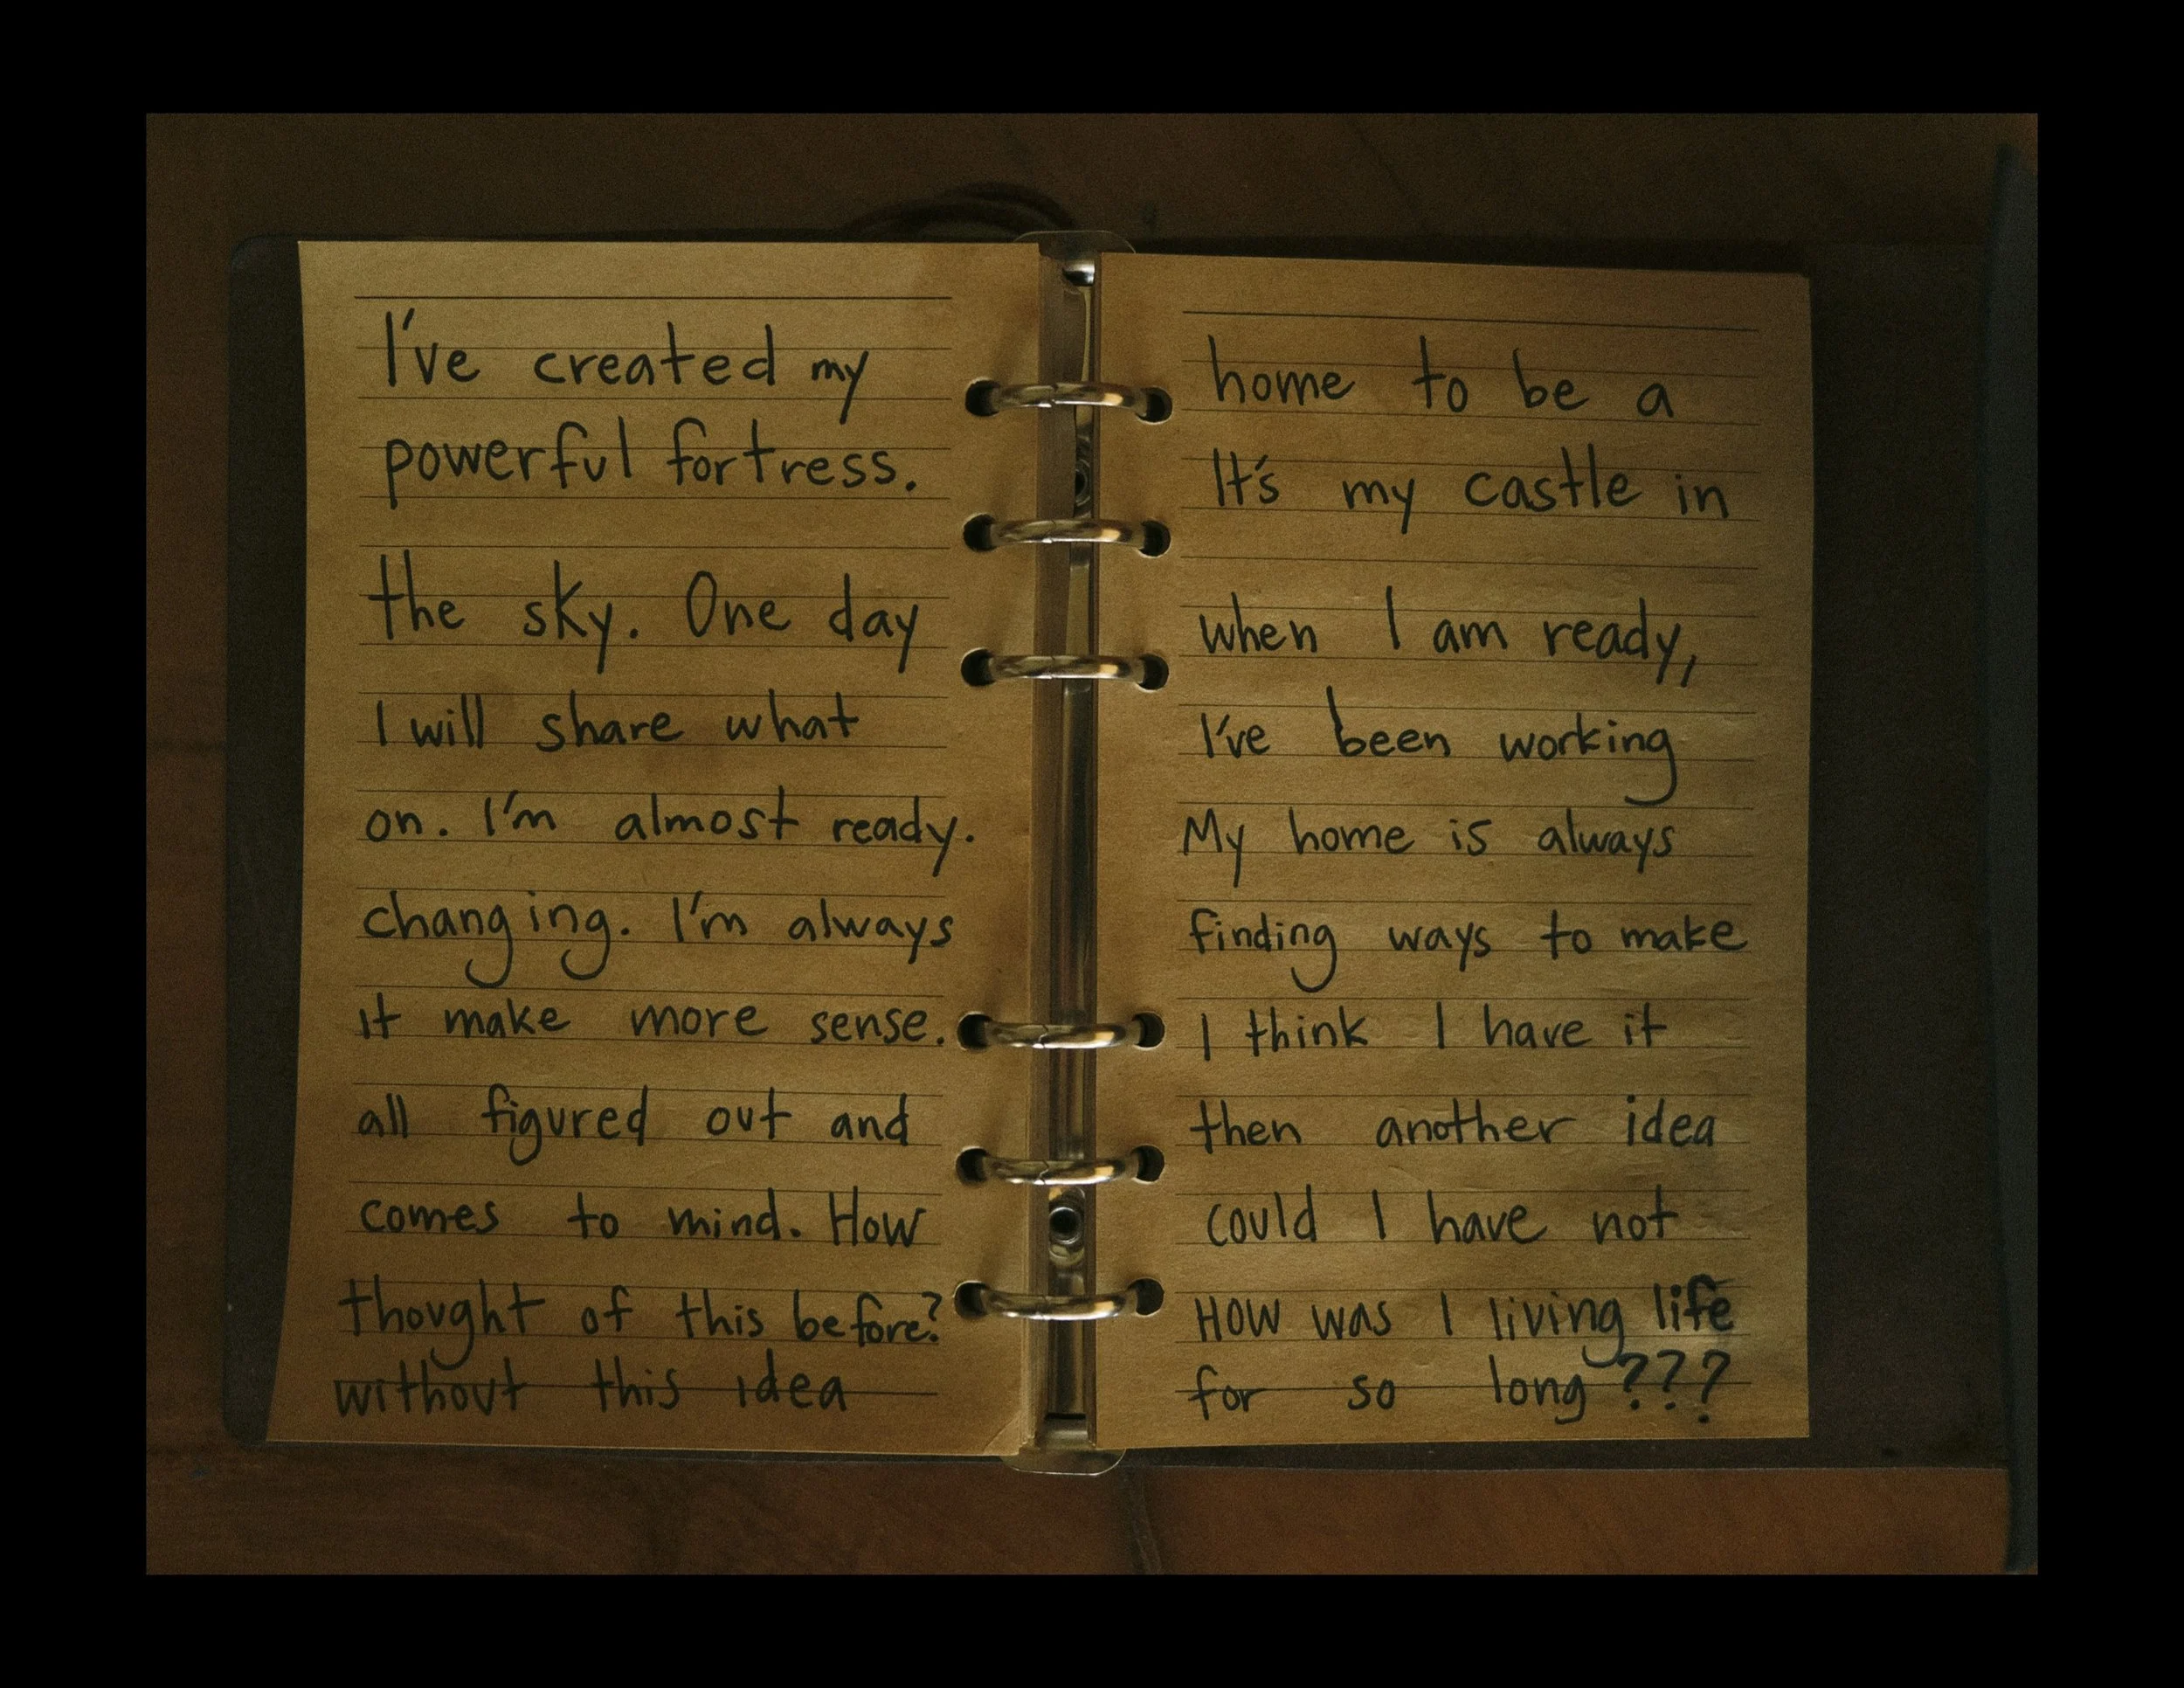 I've created my home to be a
powerful fortress. It's my castle in
the sky. One day when I am ready,
I will share what I've been working
on. I'm almost ready. My home is always
changing. I'm always finding ways to make
it make more sense. I think I have it
all figured out and then another idea
comes to mind. How could I have not
thought of this before? How was I living life
without this idea for so long???